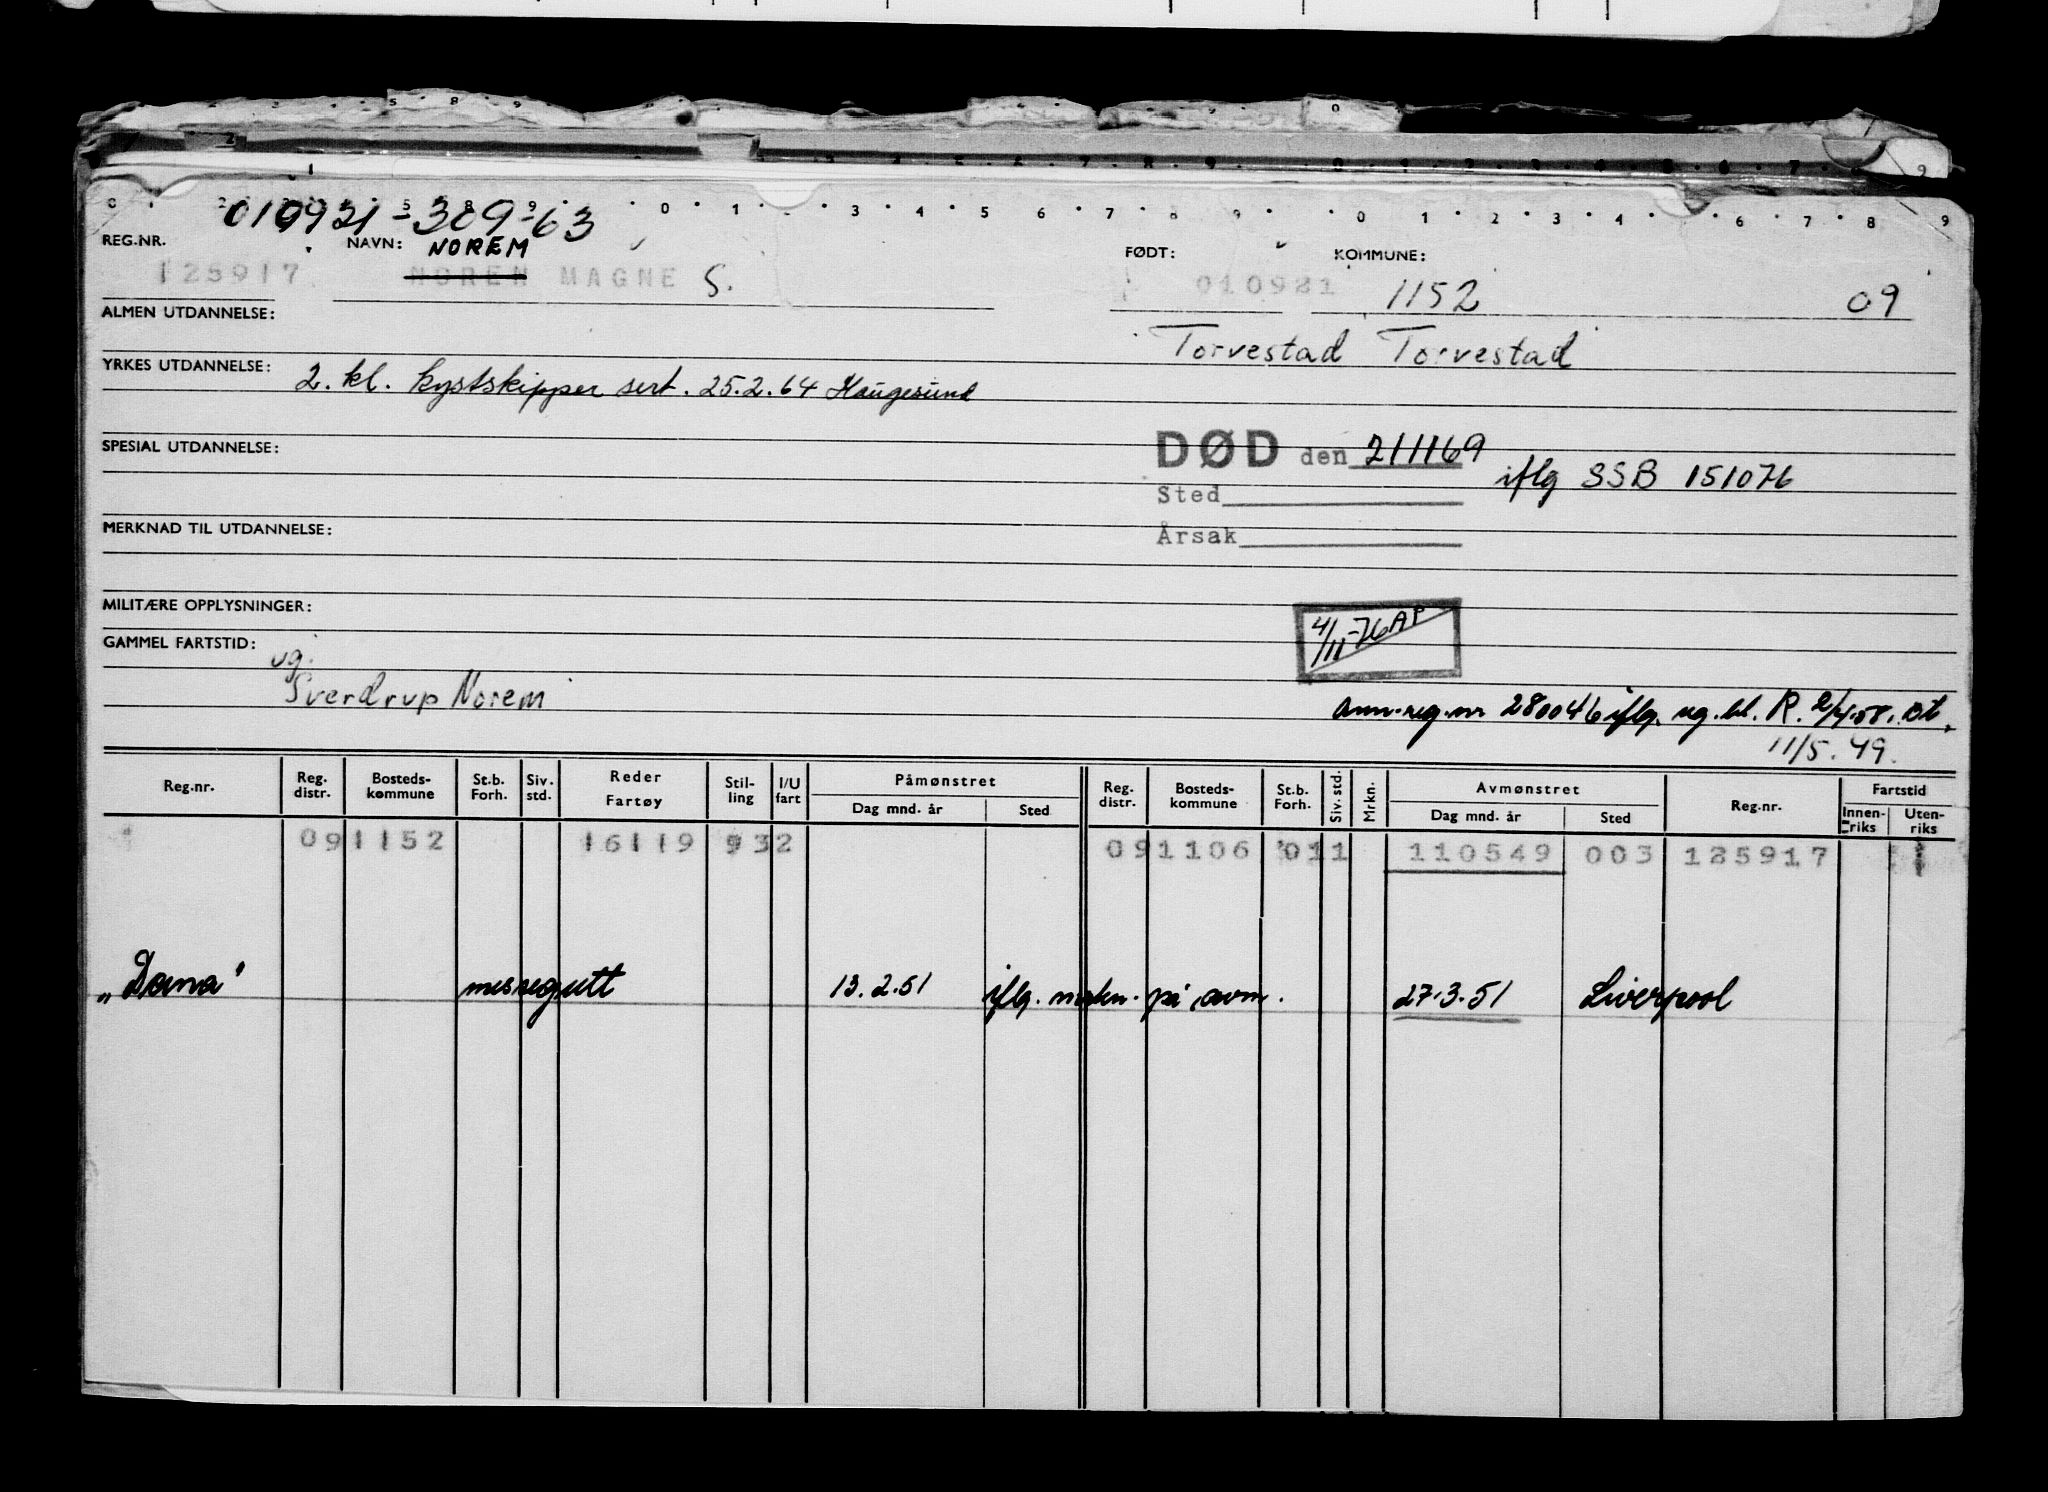 010921-309-63
REG.NR. NAVN: NOREM FØDT: KOMMUNE:
125917 NOREN MAGNE S. 010921 1152 09
ALMEN UTDANNELSE:
Torvestad Torvestad
YRKES UTDANNELSE: 2. kl. kystskipper sert. 25.2.64 Haugesund
SPESIAL UTDANNELSE: DØD den 211169
iflg SSB 151076
Sted
MERKNAD TIL UTDANNELSE:
Årsak
MILITÆRE OPPLYSNINGER:
4/11-76 AP
GAMMEL FARTSTID:
og.
Sverdrup Norem
Ann.reg.nr 280046 iflg. reg.bl. R. 2/4.58.
11/5.49.
Reg.nr. Reg. distr. Bosteds- kommune St.b. Forh. Siv. std. Reder Fartøy Stil- ling I/U fart Påmønstret Dag mnd. år Sted Reg. distr. Bosteds- kommune St.b. Forh. Siv. std. Mrkn. Avmønstret Dag mnd. år Sted Reg.nr. Fartstid Innen- riks Uten- riks
091152 16119 932 091106 011 110549 003 125917
"Dana" messegutt 13.2.51 iflg. mrkn. på avm. 27.3.51 Liverpool